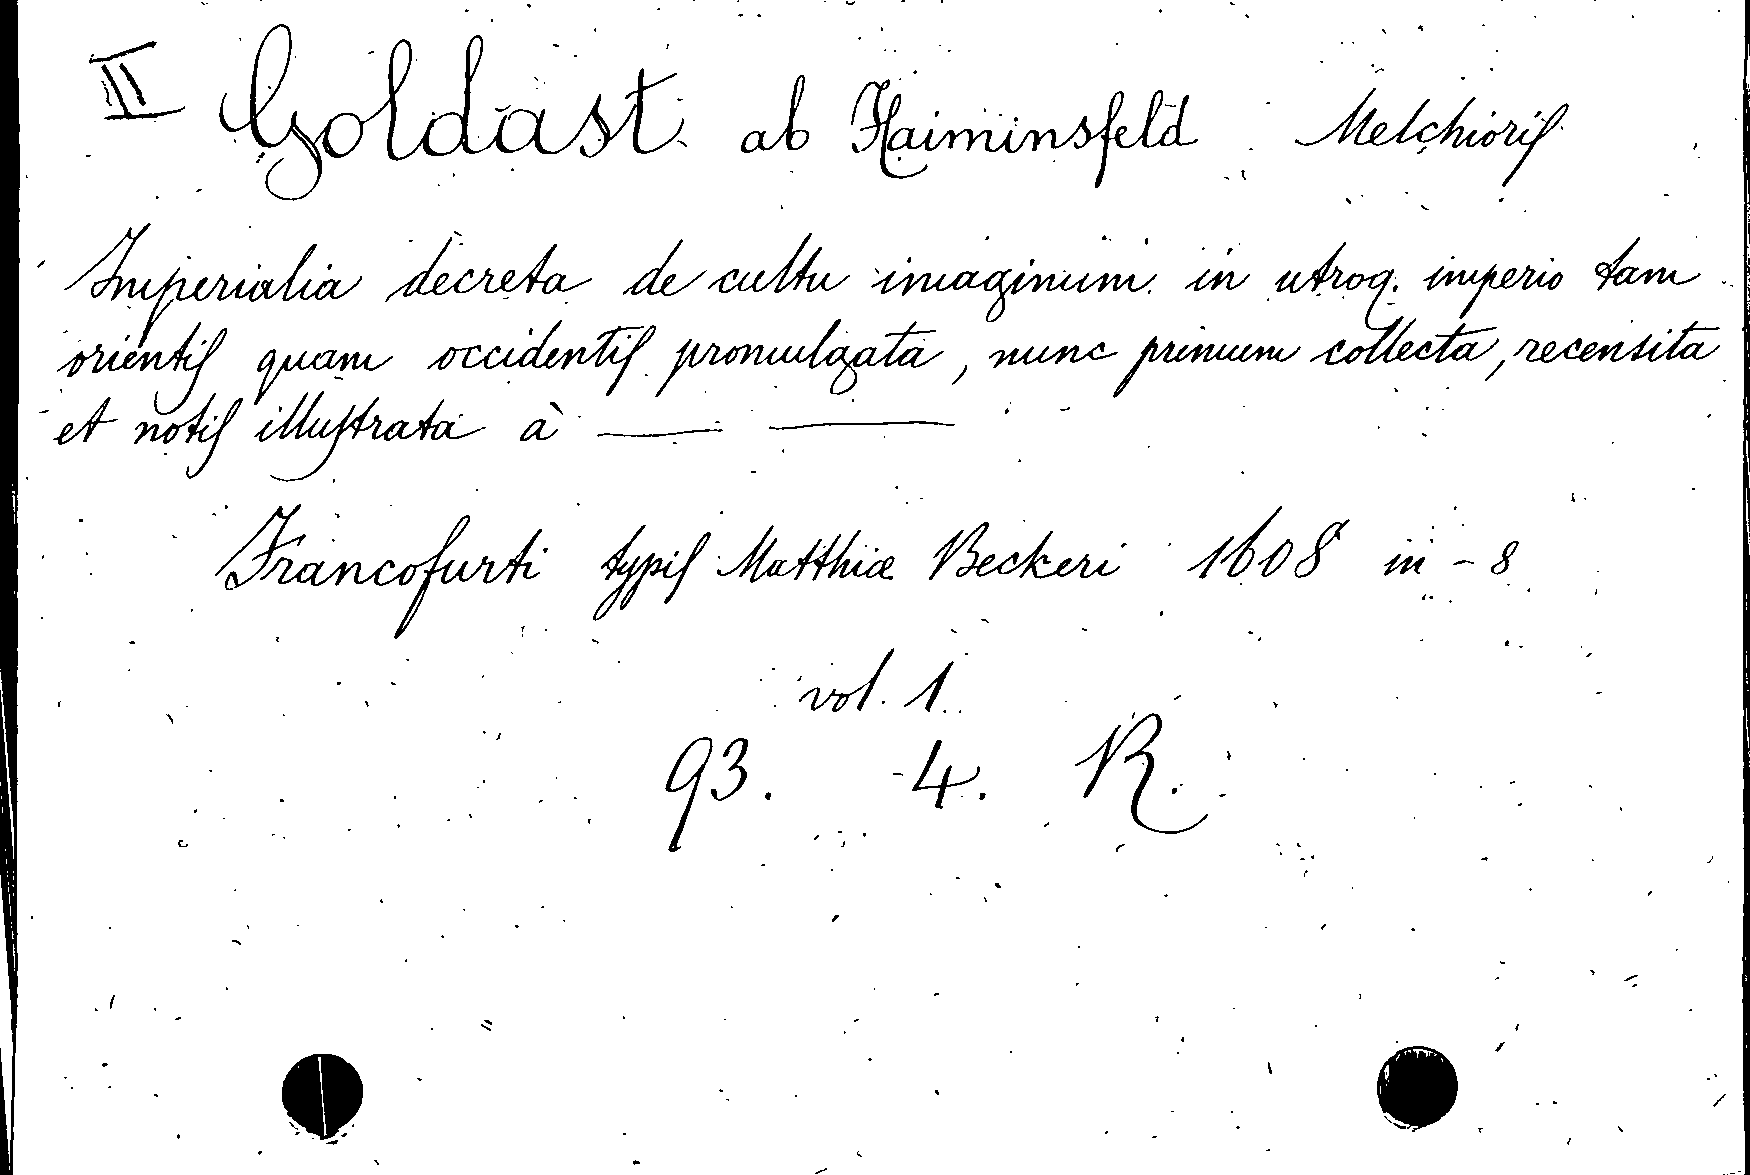 II Goldast ab Haiminsfeld Melchioris
Imperialia decreta de cultu imaginum in utroq. imperio tam
orientis quam occidentis promulgata, nunc primum collecta, recensita
et notis illustrata à — —
Francofurti typis Matthiæ Beckeri 1608 in-8
vol. 1.
93. 4. R.